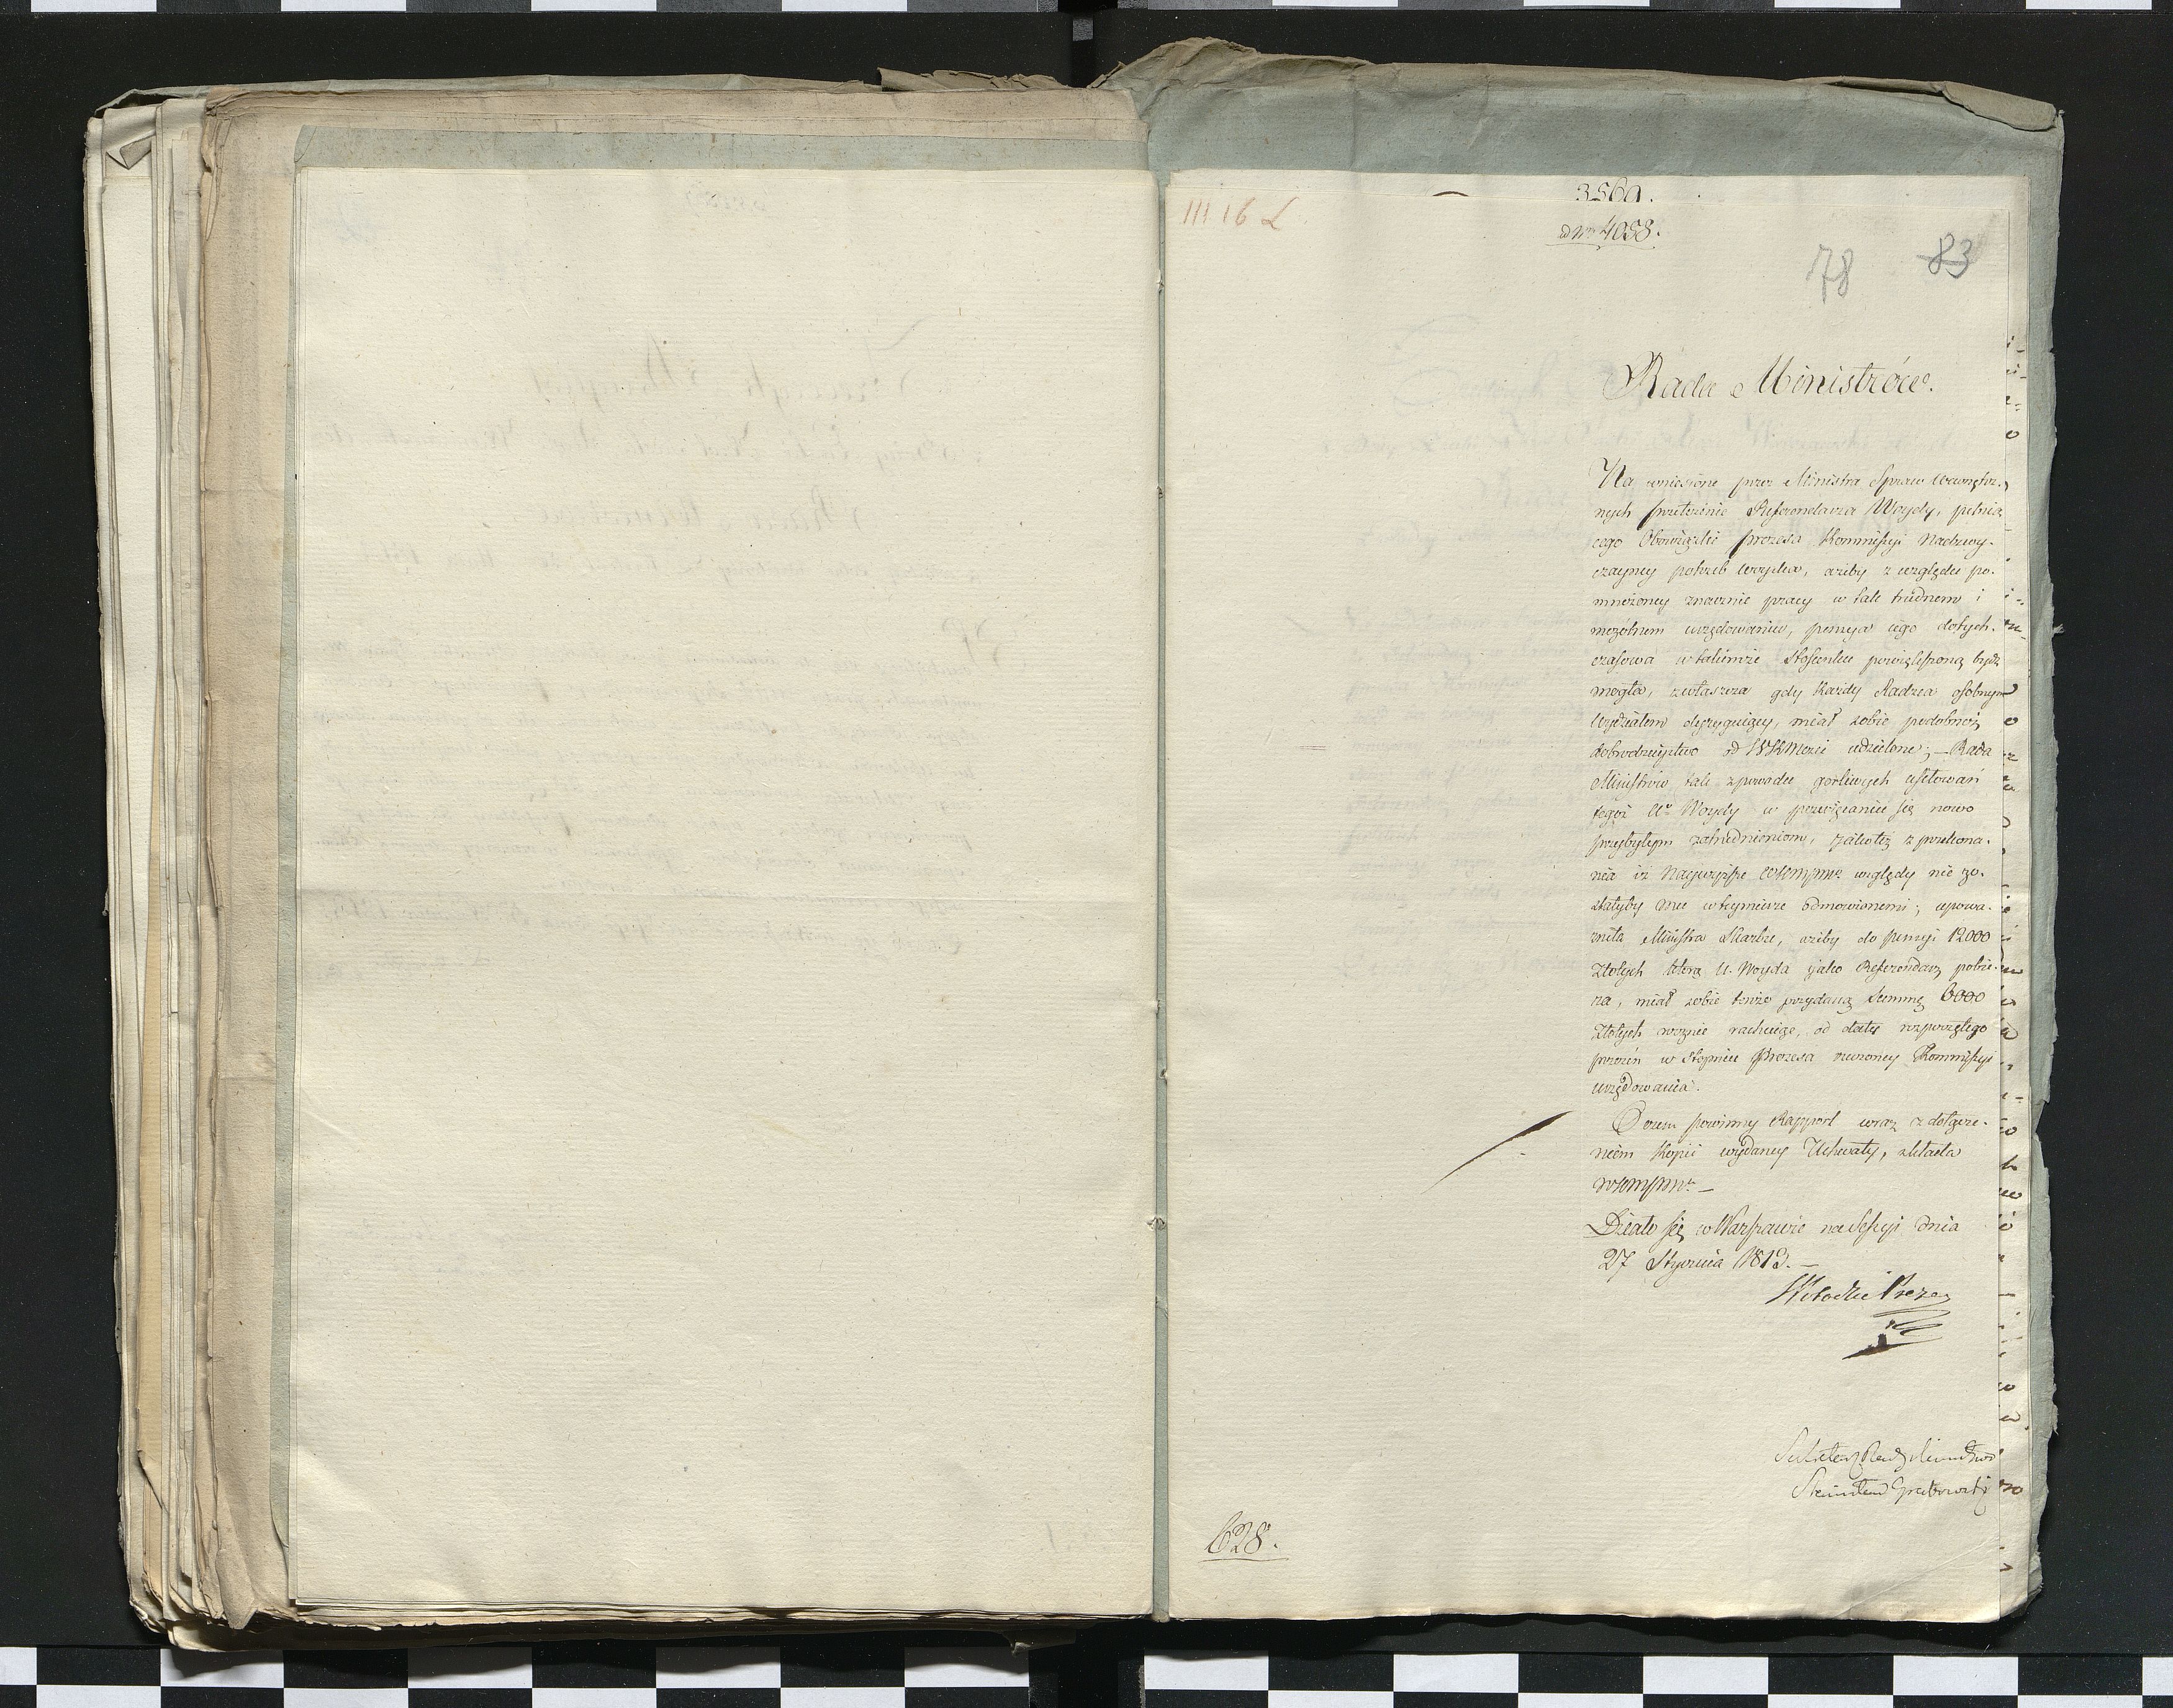 III 16 L
3569.
ad Nro 4058.
78 83
Rada Ministrów.
Na wniesione przez Ministra Spraw Wewnętrz-
nych przełożenie Referendarza Woydy, pełnią
cego Obowiązki Prezesa Kommissyi Nadzwy-
czayney potrzeb woyska, ażeby z względu po-
mnożoney znacznie pracy w tak trudnem i
mozolnem urzędowaniu, pensya iego dotych-
czasowa w takimże Stosunku powiększoną bydź
mogła, zwłaszcza gdy Każdy Radzca osobnym
Wydziałem dyryguiący, miał sobie podobneż
dobrodzieystwo od WKMości udzielone; – Rada
Ministrów tak z powodu gorliwych usiłowań
tegoż Ur Woydy w poświęcaniu się nowo
przybyłym zatrudnieniom, jakoteż z przekona-
nia iż Naywyższe względy nie zo-
stałyby mu w teymierze odmowionemi; upowa-
żniła Ministra Skarbu, ażeby do pensyi 12000
Złotych którą U. Woyda jako Referendarz pobie-
ra, miał sobie tenże przydaną Summę 6000
Złotych rocznie rachuiąc, od daty rozpoczętego
przezeń w Stopniu Prezesa rzeczoney Kommissyi
urzędowania.
O czem powinny Rapport wraz z dołącze-
niem Kopii wydaney Uchwały, składa
WKMPMu –
Działo się w Warszawie na Sessyi dnia
27 Stycznia 1813. –
Sekretarz Rady Ministrów
Stanisław Grabowski
628.